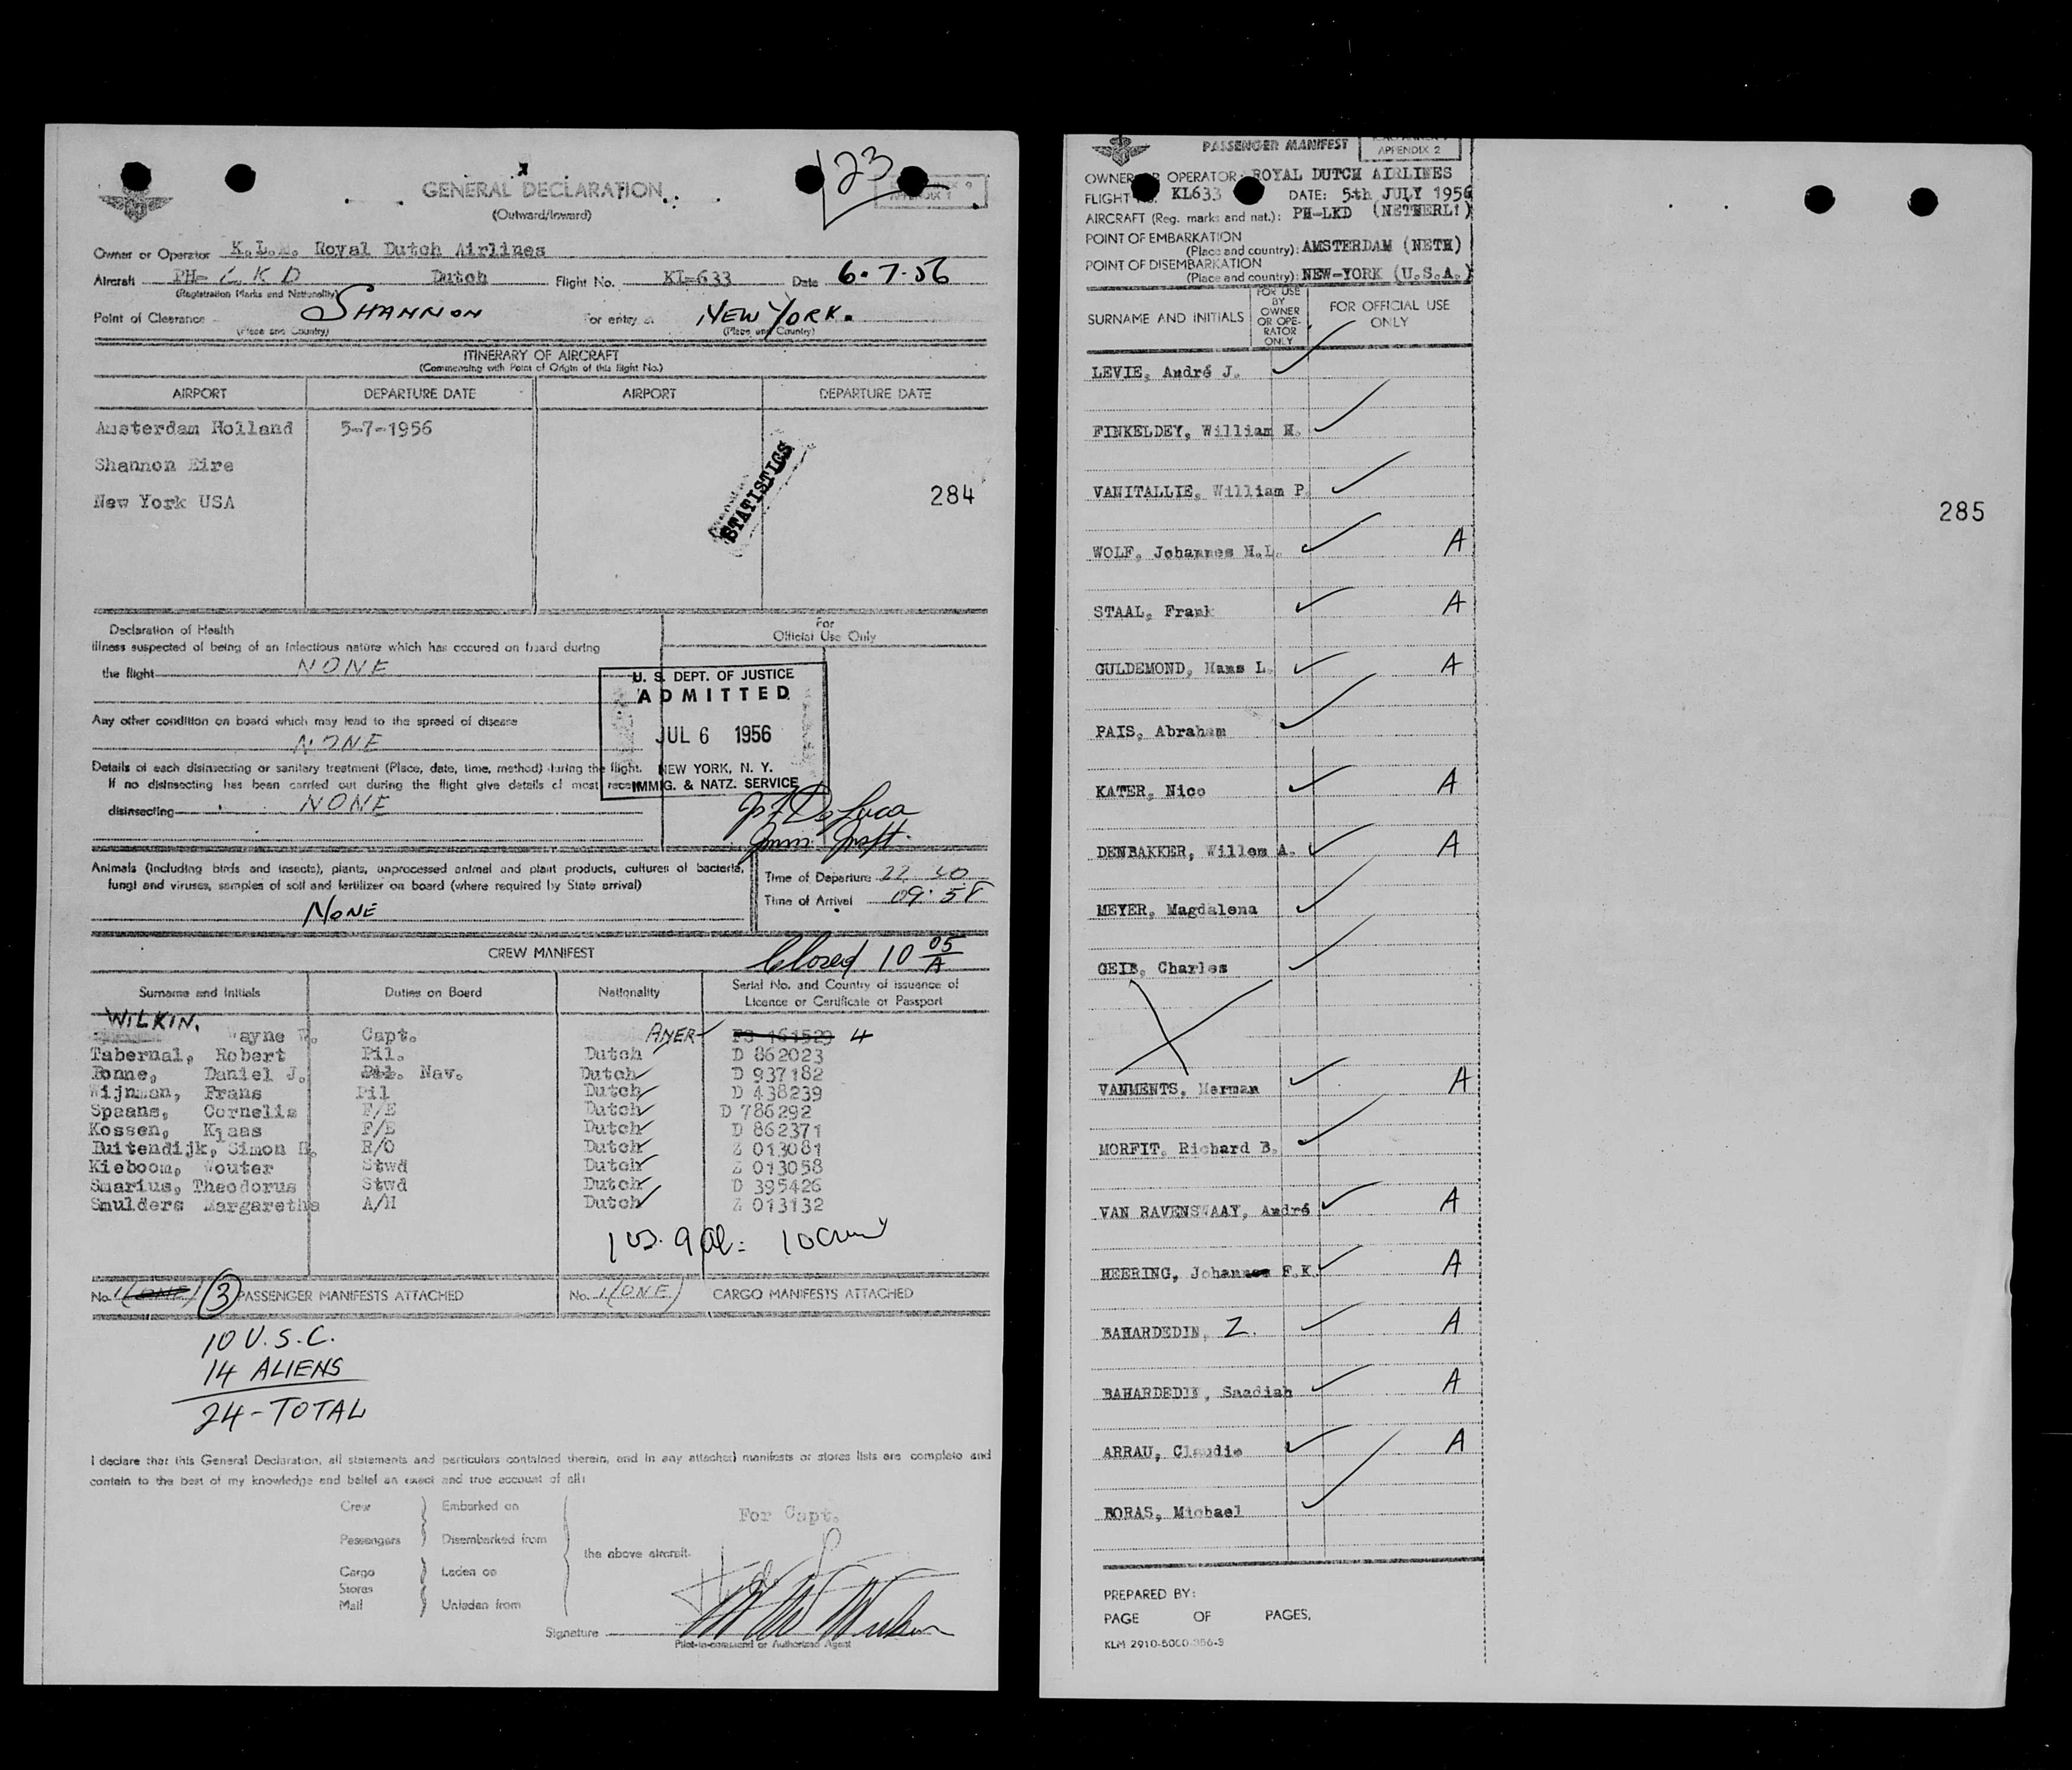 123
GENERAL DECLARATION
(Outward/Inward)
Owner or Operator K.L.M. Royal Dutch Airlines
Aircraft PH- LKD Dutch Flight No. KL-633 Date 6-7-56
(Registration Marks and Nationality)
Point of Clearance SHANNON For entry at NEW YORK.
(Place and Country) (Place and Country)
ITINERARY OF AIRCRAFT
(Commencing with Point of Origin of this flight No.)
AIRPORT DEPARTURE DATE AIRPORT DEPARTURE DATE
Amsterdam Holland 5-7-1956
Shannon Eire
New York USA
STATISTICS
284
Declaration of Health
Illness suspected of being of an infectious nature which has occured on board during
the flight NONE
Any other condition on board which may lead to the spreed of disease
NONE
Details of each disinsecting or sanitary treatment (Place, date, time, method) during the flight.
If no disinsecting has been carried out during the flight give details of most recent
disinsecting NONE
For
Official Use Only
U. S. DEPT. OF JUSTICE
ADMITTED
JUL 6 1956
NEW YORK, N. Y.
IMMIG. & NATZ. SERVICE
Animals (including birds and insects), plants, unprocessed animal and plant products, cultures of bacteria,
fungi and viruses, samples of soil and fertilizer on board (where required by State arrival)
NONE
Time of Departure 22
Time of Arrival 09:58
CREW MANIFEST
Closed 10 05/A
Surname and Initials Duties on Board Nationality Serial No. and Country of issuance of
Licence or Certificate or Passport
WILKIN.
Wayne W. Capt. AMER 4
Tabernal, Robert Pil. Dutch D 862023
Bonne, Daniel J. Pil. Nav. Dutch D 937182
Wijnman, Frans Pil Dutch D 438239
Spaans, Cornelis F/E Dutch D 786292
Kossen, Klaas F/E Dutch D 862371
Buitendijk, Simon H. R/O Dutch Z 013081
Kieboom, Wouter Stwd Dutch Z 013058
Smarius, Theodorus Stwd Dutch D 395426
Smulders Margaretha A/H Dutch Z 013132
1 US. 9 al: 10 Crew
No. 1 (ONE) 3 PASSENGER MANIFESTS ATTACHED No. 1 (ONE) CARGO MANIFESTS ATTACHED
10 U.S.C.
14 ALIENS
24-TOTAL
I declare that this General Declaration, all statements and particulars contained therein, and in any attached manifests or stores lists are complete and
contain to the best of my knowledge and belief an exact and true account of all:
Crew Embarked on
Passengers Disembarked from
Cargo Laden on
Stores
Mail Unladen from
the above aircraft.
For Capt.
Signature
Pilot-in-command or Authorized Agent
PASSENGER MANIFEST
APPENDIX 2
OWNER OR OPERATOR: ROYAL DUTCH AIRLINES
FLIGHT No. KL633 DATE: 5th JULY 1956
AIRCRAFT (Reg. marks and nat.): PH-LKD (NETHERL.)
POINT OF EMBARKATION
(Place and country): AMSTERDAM (NETH)
POINT OF DISEMBARKATION
(Place and country): NEW-YORK (U.S.A.)
SURNAME AND INITIALS
FOR USE BY OWNER OR OPE-RATOR ONLY
FOR OFFICIAL USE ONLY
LEVIE, André J.
FINKELDEY, William H.
VANITALLIE, William P.
WOLF, Johannes H.L. A
STAAL, Frank A
GULDEMOND, Hans L. A
PAIS, Abraham
KATER, Nico A
DENBAKKER, Willem A. A
MEYER, Magdalena
GEIB, Charles
VANMENTS, Herman A
MORFIT, Richard B.
VAN RAVENSWAAY, André A
HEERING, Johannes F.K. A
BAHARDEDIN, Z. A
BAHARDEDIN, Saadiah A
ARRAU, Claudio A
BORAS, Michael
PREPARED BY:
PAGE OF PAGES.
KLM 2910-5000-356-3
285